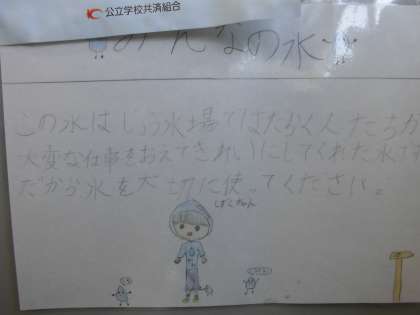 公立学校共済組合
みんなの水
この水はじょう水場ではたらく人たちが
大変な仕事をおえてきれいにしてくれた水です
だから水を大切に使ってください。
しずくちゃん